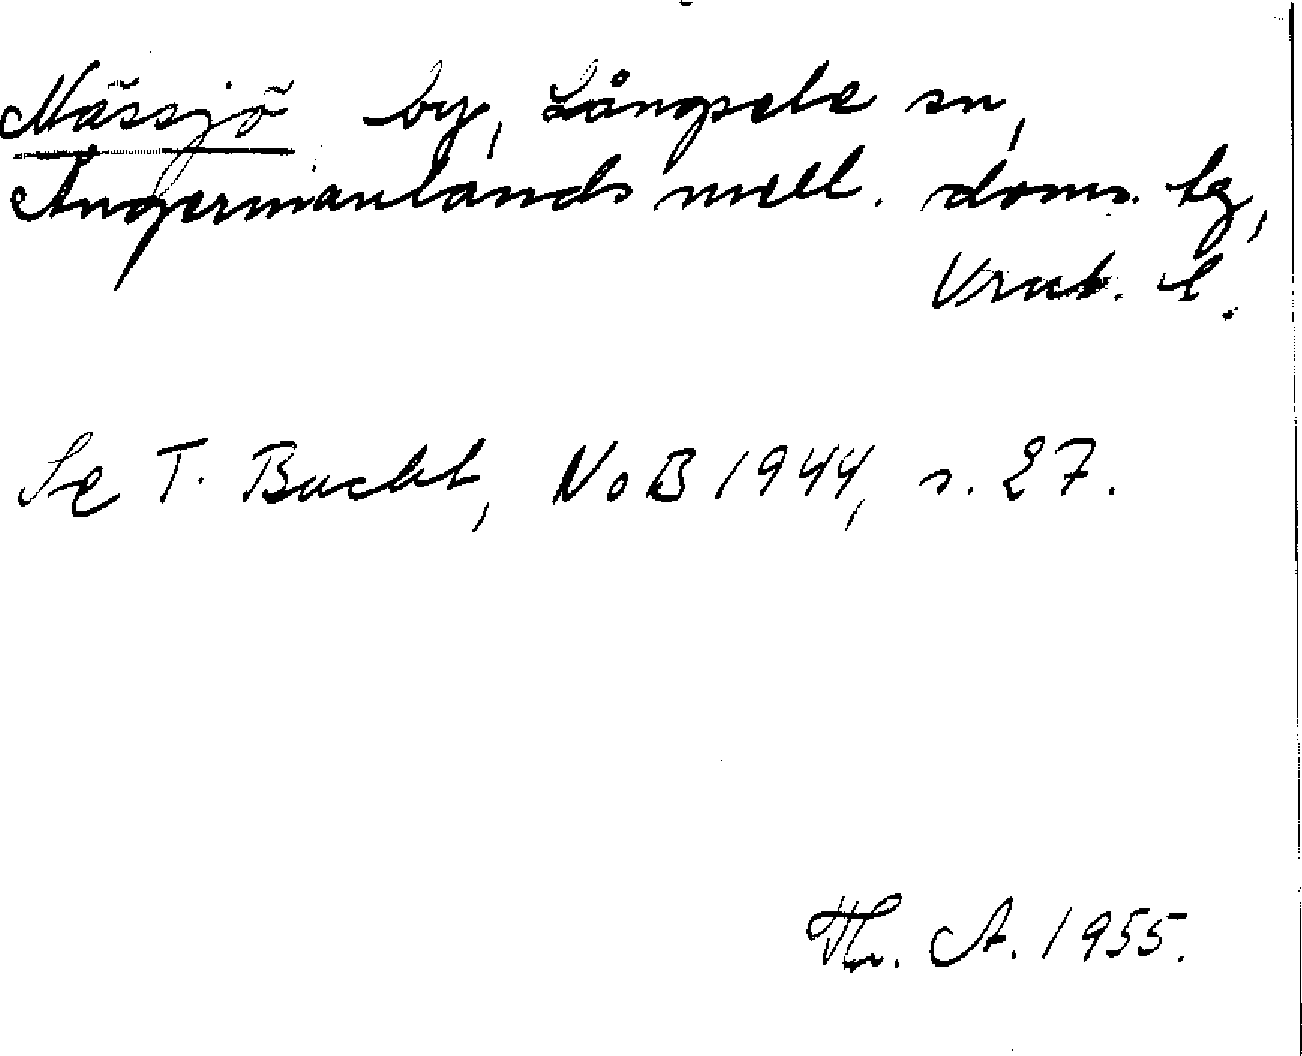 Mässjö by, Långsele sn,
Ångermanlands mell. doms. tg,
Vnrl. l.
Se T. Bucht, NoB 1944, s. 27.
Th. A. 1955.